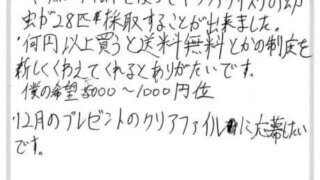 虫が28匹採取することが出来ました。
・何円以上買うと送料無料とかの制度を
新しくくわえてくれるとありがたいです。
僕の希望 5000〜1000円位
・12月のプレゼントのクリアファイルに応募したい
です。